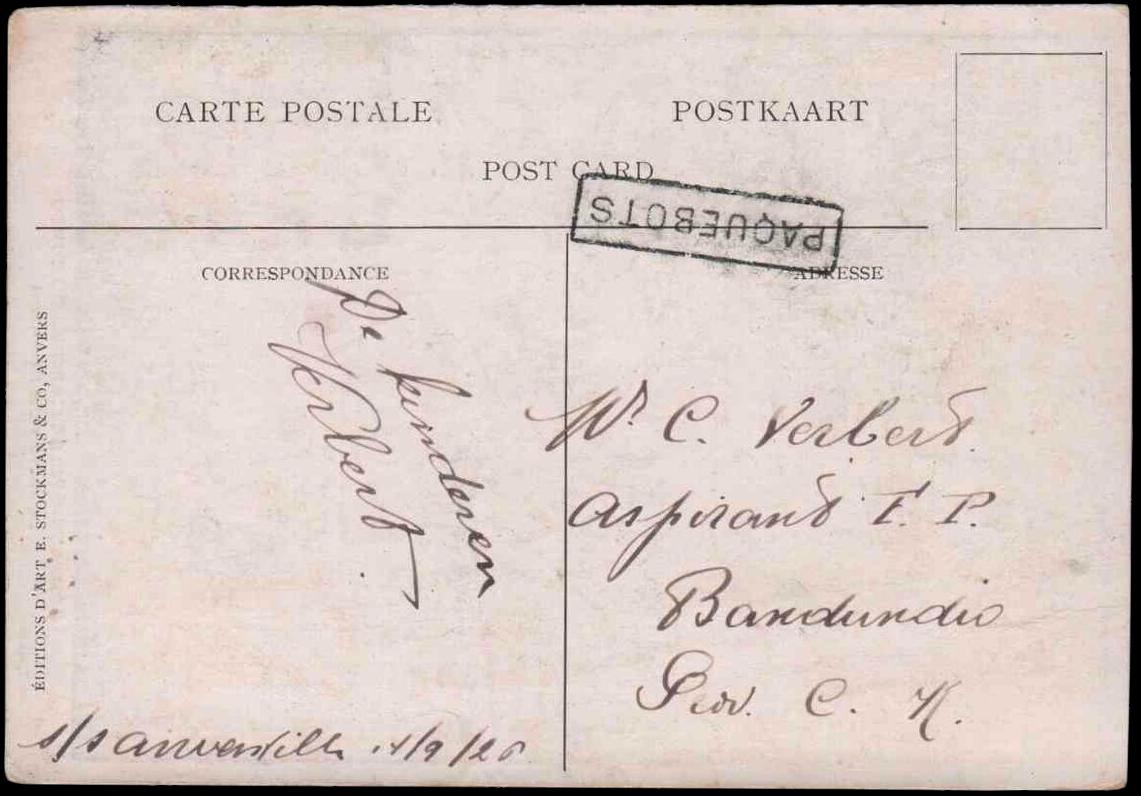 CARTE POSTALE
POSTKAART
POST CARD
PAQUEBOTS
CORRESPONDANCE
ADRESSE
De kinderen
Verbert
Mr. C. Verbert.
Aspirant F. P.
Bandundu
Prov. C. K.
s/s Anversville /9/26
ÉDITIONS D'ART E. STOCKMANS & CO, ANVERS